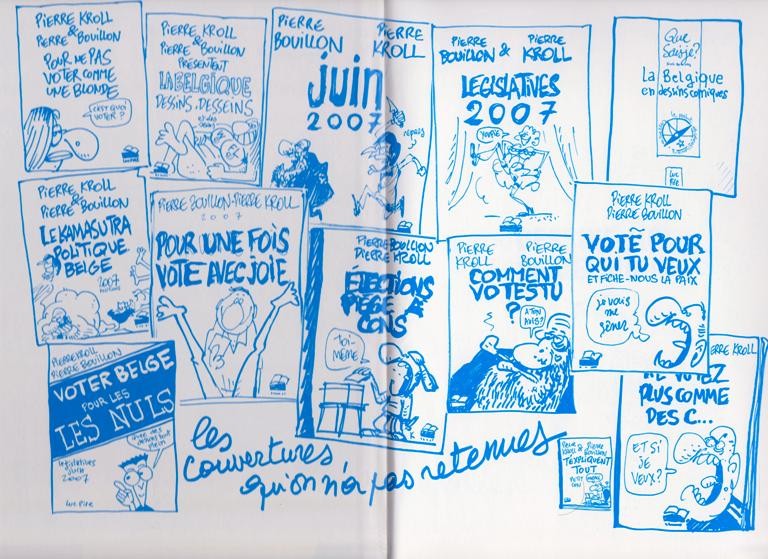 PIERRE KROLL
&
PIERRE BOUILLON
POUR NE PAS
VOTER COMME
UNE BLONDE
C'EST QUOI
VOTER ?
PIERRE KROLL
&
PIERRE BOUILLON
PRÉSENTENT
LA BELGIQUE
DESSINS, DESSEINS
PIERRE
BOUILLON
PIERRE
KROLL
juin
2007
PIERRE
BOUILLON
&
PIERRE
KROLL
LEGISLATIVES
2007
YOUPIE
Que
Sais-je?
La Belgique
en dessins comiques
LUC
PIRE
PIERRE KROLL
&
PIERRE BOUILLON
LE KAMASUTRA
POLITIQUE
BELGE
2007
PIERRE BOUILLON - PIERRE KROLL
2007
POUR UNE FOIS
VOTE AVEC JOIE
PIERRE BOUILLON
PIERRE KROLL
ÉLECTIONS
PIÈGE À
CONS
TOI-
MÊME
PIERRE
KROLL
PIERRE
BOUILLON
COMMENT
VOTES TU
?
À TON
AVIS?
PIERRE KROLL
PIERRE BOUILLON
VOTE POUR
QUI TU VEUX
ET FICHE-NOUS LA PAIX
je vais
me
gêner
PIERRE KROLL
PIERRE BOUILLON
VOTER BELGE
POUR LES
LES NULS
législatives
Juin
2007
LUC PIRE
ERRE KROLL
PLUS COMME
DES C...
ET SI
JE
VEUX?
PIERRE
KROLL &
PIERRE
BOUILLON
T'EXPLIQUENT
TOUT
PETIT
CON
les
couvertures
qu'on n'a pas retenues